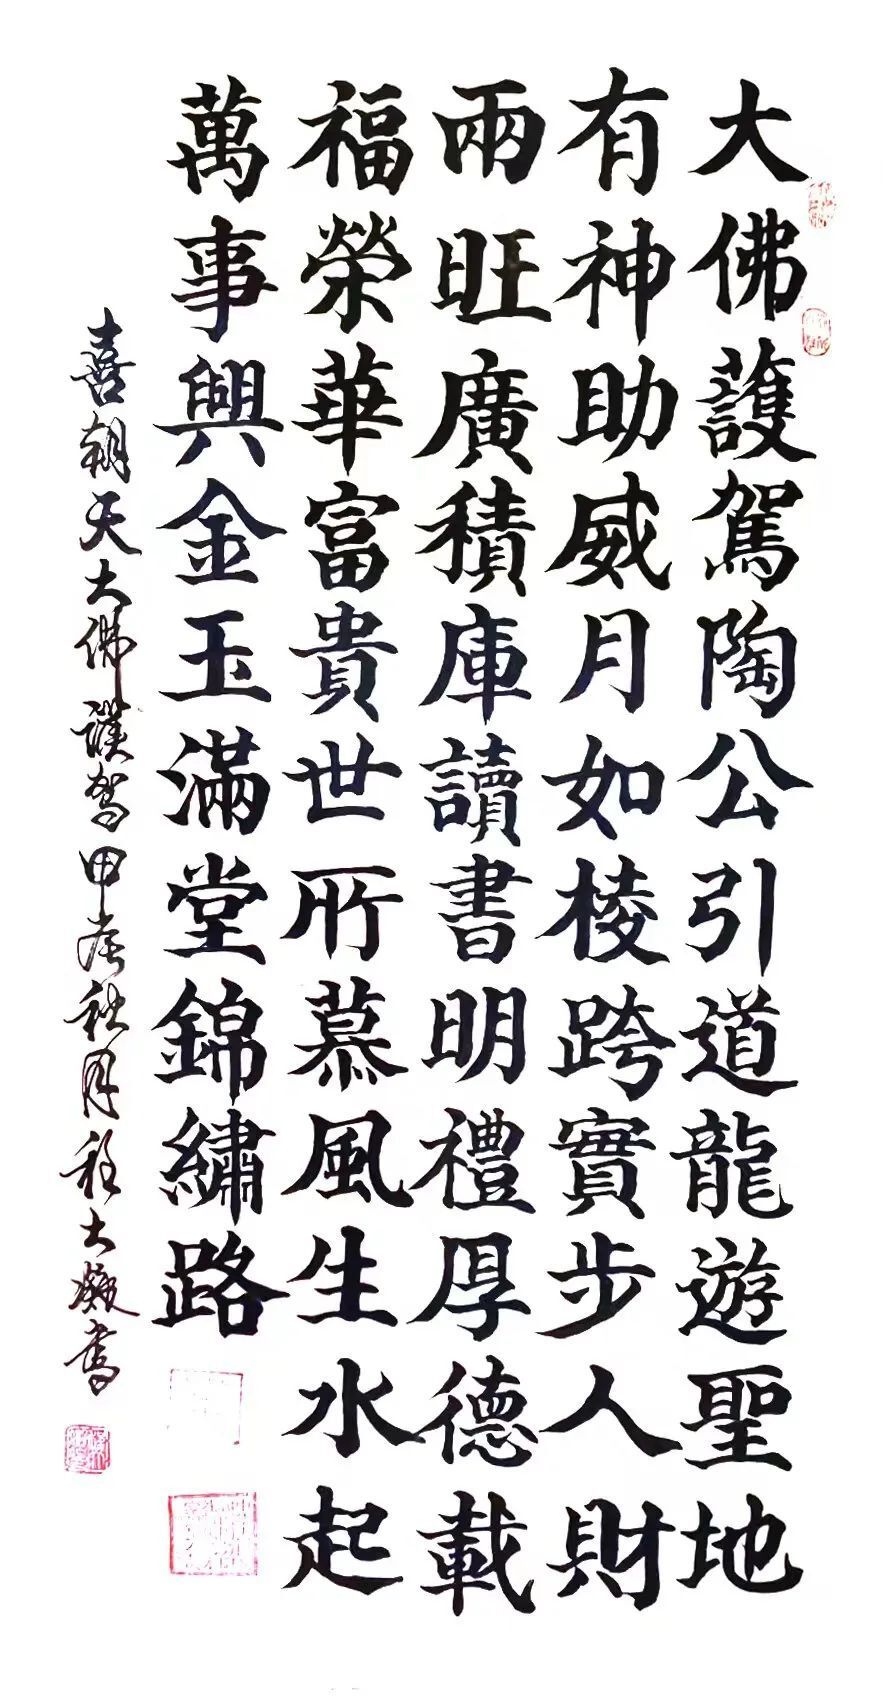 大佛護駕陶公引道龍遊聖地
有神助威月如棱跨實步人財
兩旺廣積庫讀書明禮厚德載
福榮華富貴世所慕風生水起
萬事興金玉滿堂錦繡路
喜朝天大佛護駕甲辰秋月程大書